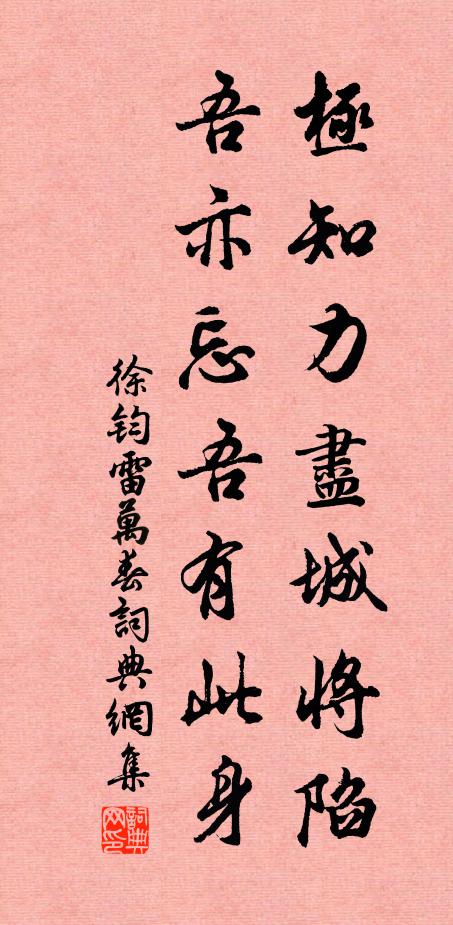 極知力盡城將陷
吾亦忘吾有此身
徐鈞雷萬春詞典網集
詞典网印